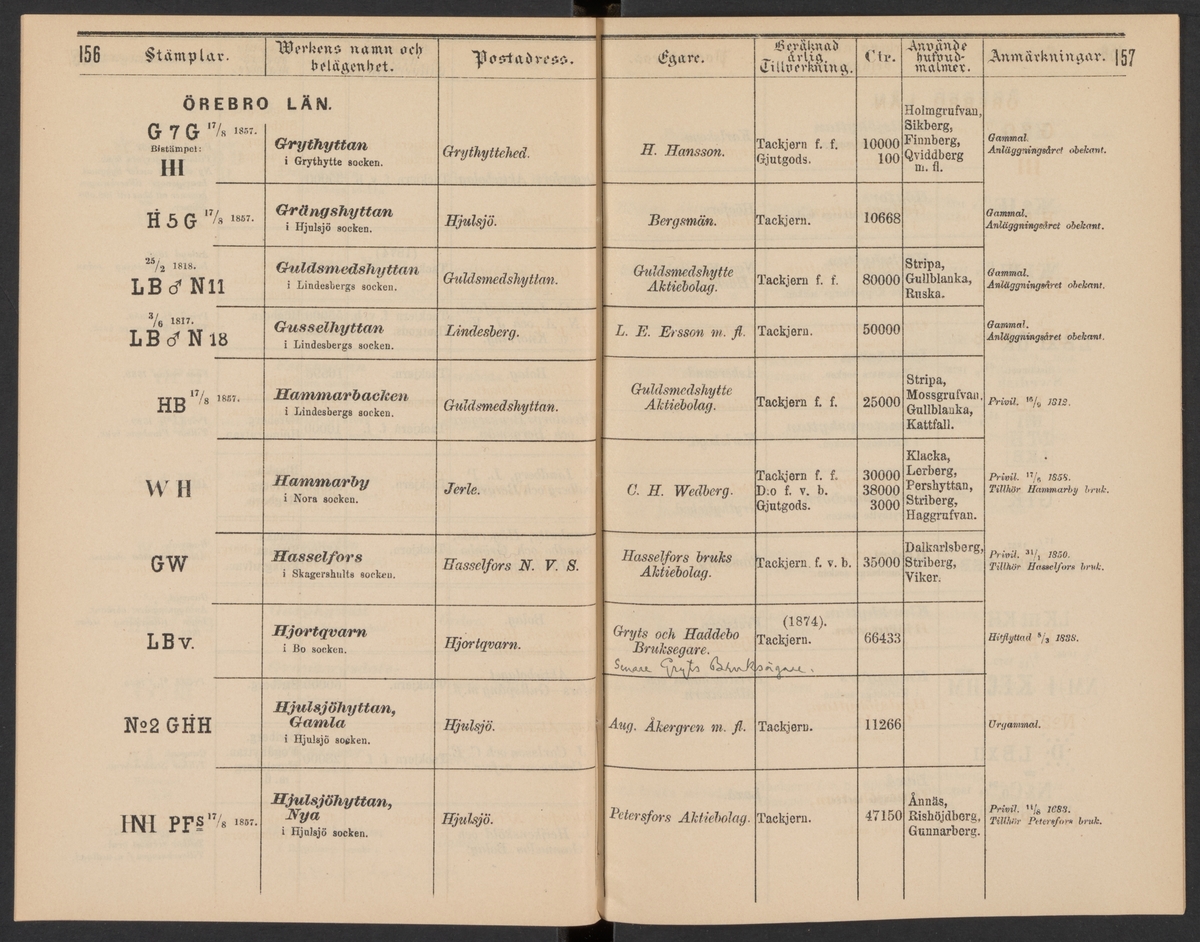 156
Stämplar.
Werkens namn och
belägenhet.
Postadress.
Egare.
Beräknad
årlig
Tillverkning.
Ctr.
Använde
hufvud-
malmer.
Anmärkningar.
157
ÖREBRO LÄN.
G 7 G 17/8 1857.
Bistämpel:
HI
Grythyttan
i Grythytte socken.
Grythyttehed.
H. Hansson.
Tackjern f. f. 10000
Gjutgods. 100
Holmgrufvan,
Sikberg,
Finnberg,
Qviddberg
m. fl.
Gammal.
Anläggningsåret obekant.
Ḣ 5 G 17/8 1857.
Grängshyttan
i Hjulsjö socken.
Hjulsjö.
Bergsmän.
Tackjern.
10668
Gammal.
Anläggningsåret obekant.
25/2 1818.
LB ♂ N 11
Guldsmedshyttan
i Lindesbergs socken.
Guldsmedshyttan.
Guldsmedshytte
Aktiebolag.
Tackjern f. f.
80000
Stripa,
Gullblanka,
Ruska.
Gammal.
Anläggningsåret obekant.
3/6 1817.
LB ♂ N 18
Gusselhyttan
i Lindesbergs socken.
Lindesberg.
L. E. Ersson m. fl.
Tackjern.
50000
Gammal.
Anläggningsåret obekant.
HB 17/8 1857.
Hammarbacken
i Lindesbergs socken.
Guldsmedshyttan.
Guldsmedshytte
Aktiebolag.
Tackjern f. f.
25000
Stripa,
Mossgrufvan,
Gullblanka,
Kattfall.
Privil. 1812.
W H
Hammarby
i Nora socken.
Jerle.
C. H. Wedberg.
Tackjern f. f. 30000
D:o f. v. b. 38000
Gjutgods. 3000
Klacka,
Lerberg,
Pershyttan,
Striberg,
Haggrufvan.
Privil. 1858.
Tillhör Hammarby bruk.
GW
Hasselfors
i Skagershults socken.
Hasselfors N. V. S.
Hasselfors bruks
Aktiebolag.
Tackjern f. v. b.
35000
Dalkarlsberg,
Striberg,
Viker.
Privil. 31/1 1850.
Tillhör Hasselfors bruk.
LB v.
Hjortqvarn
i Bo socken.
Hjortqvarn.
Gryts och Haddebo
Bruksegare.
Senare Gryts Bruksägare.
(1874).
Tackjern.
66433
Hitflyttad 1838.
No2 GḢH
Hjulsjöhyttan,
Gamla
i Hjulsjö socken.
Hjulsjö.
Aug. Åkergren m. fl.
Tackjern.
11266
Urgammal.
INI PFs 17/8 1857.
Hjulsjöhyttan,
Nya
i Hjulsjö socken.
Hjulsjö.
Petersfors Aktiebolag.
Tackjern.
47150
Ånnäs,
Rishöjdberg,
Gunnarberg.
Privil. 1683.
Tillhör Petersfors bruk.